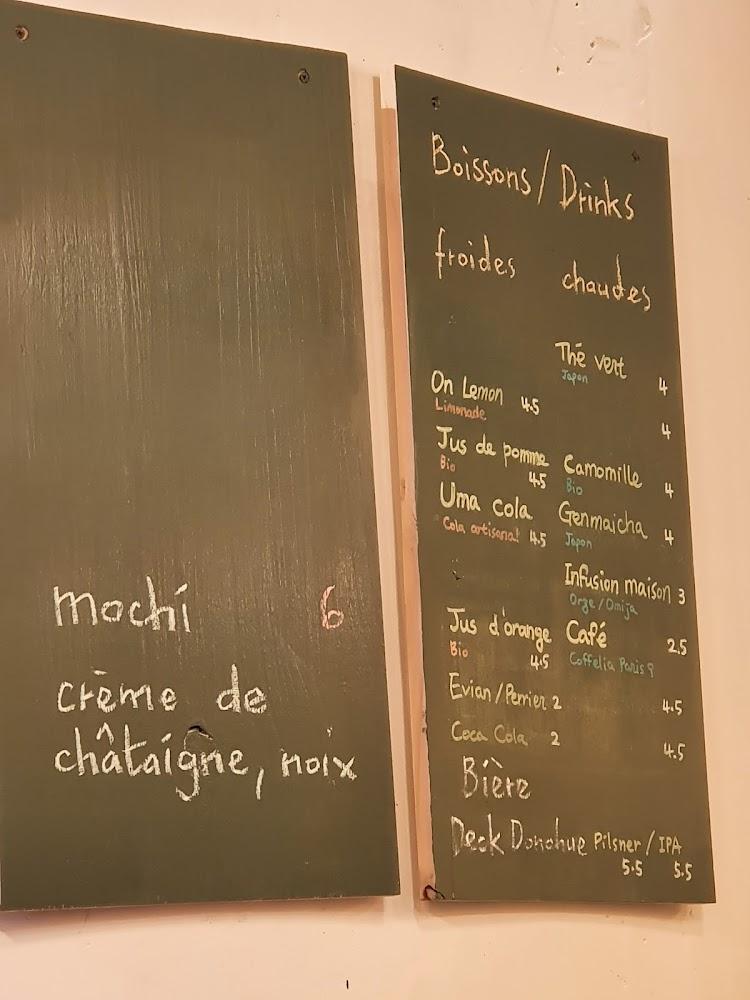 mochi 6
crème de
châtaigne, noix
Boissons / Drinks
froides chaudes
Thé vert 4
Japon
On Lemon 4.5
Limonade
4
Jus de pomme 4.5
Bio
Camomille 4
Bio
Uma cola 4.5
Cola artisanal
Genmaicha 4
Japon
Infusion maison 3
Orge / Omija
Jus d'orange 4.5
Bio
Café 2.5
Coffelia Paris 9
Evian / Perrier 2
4.5
Coca Cola 2
4.5
Bière
Deck Donohue Pilsner / IPA
5.5 5.5